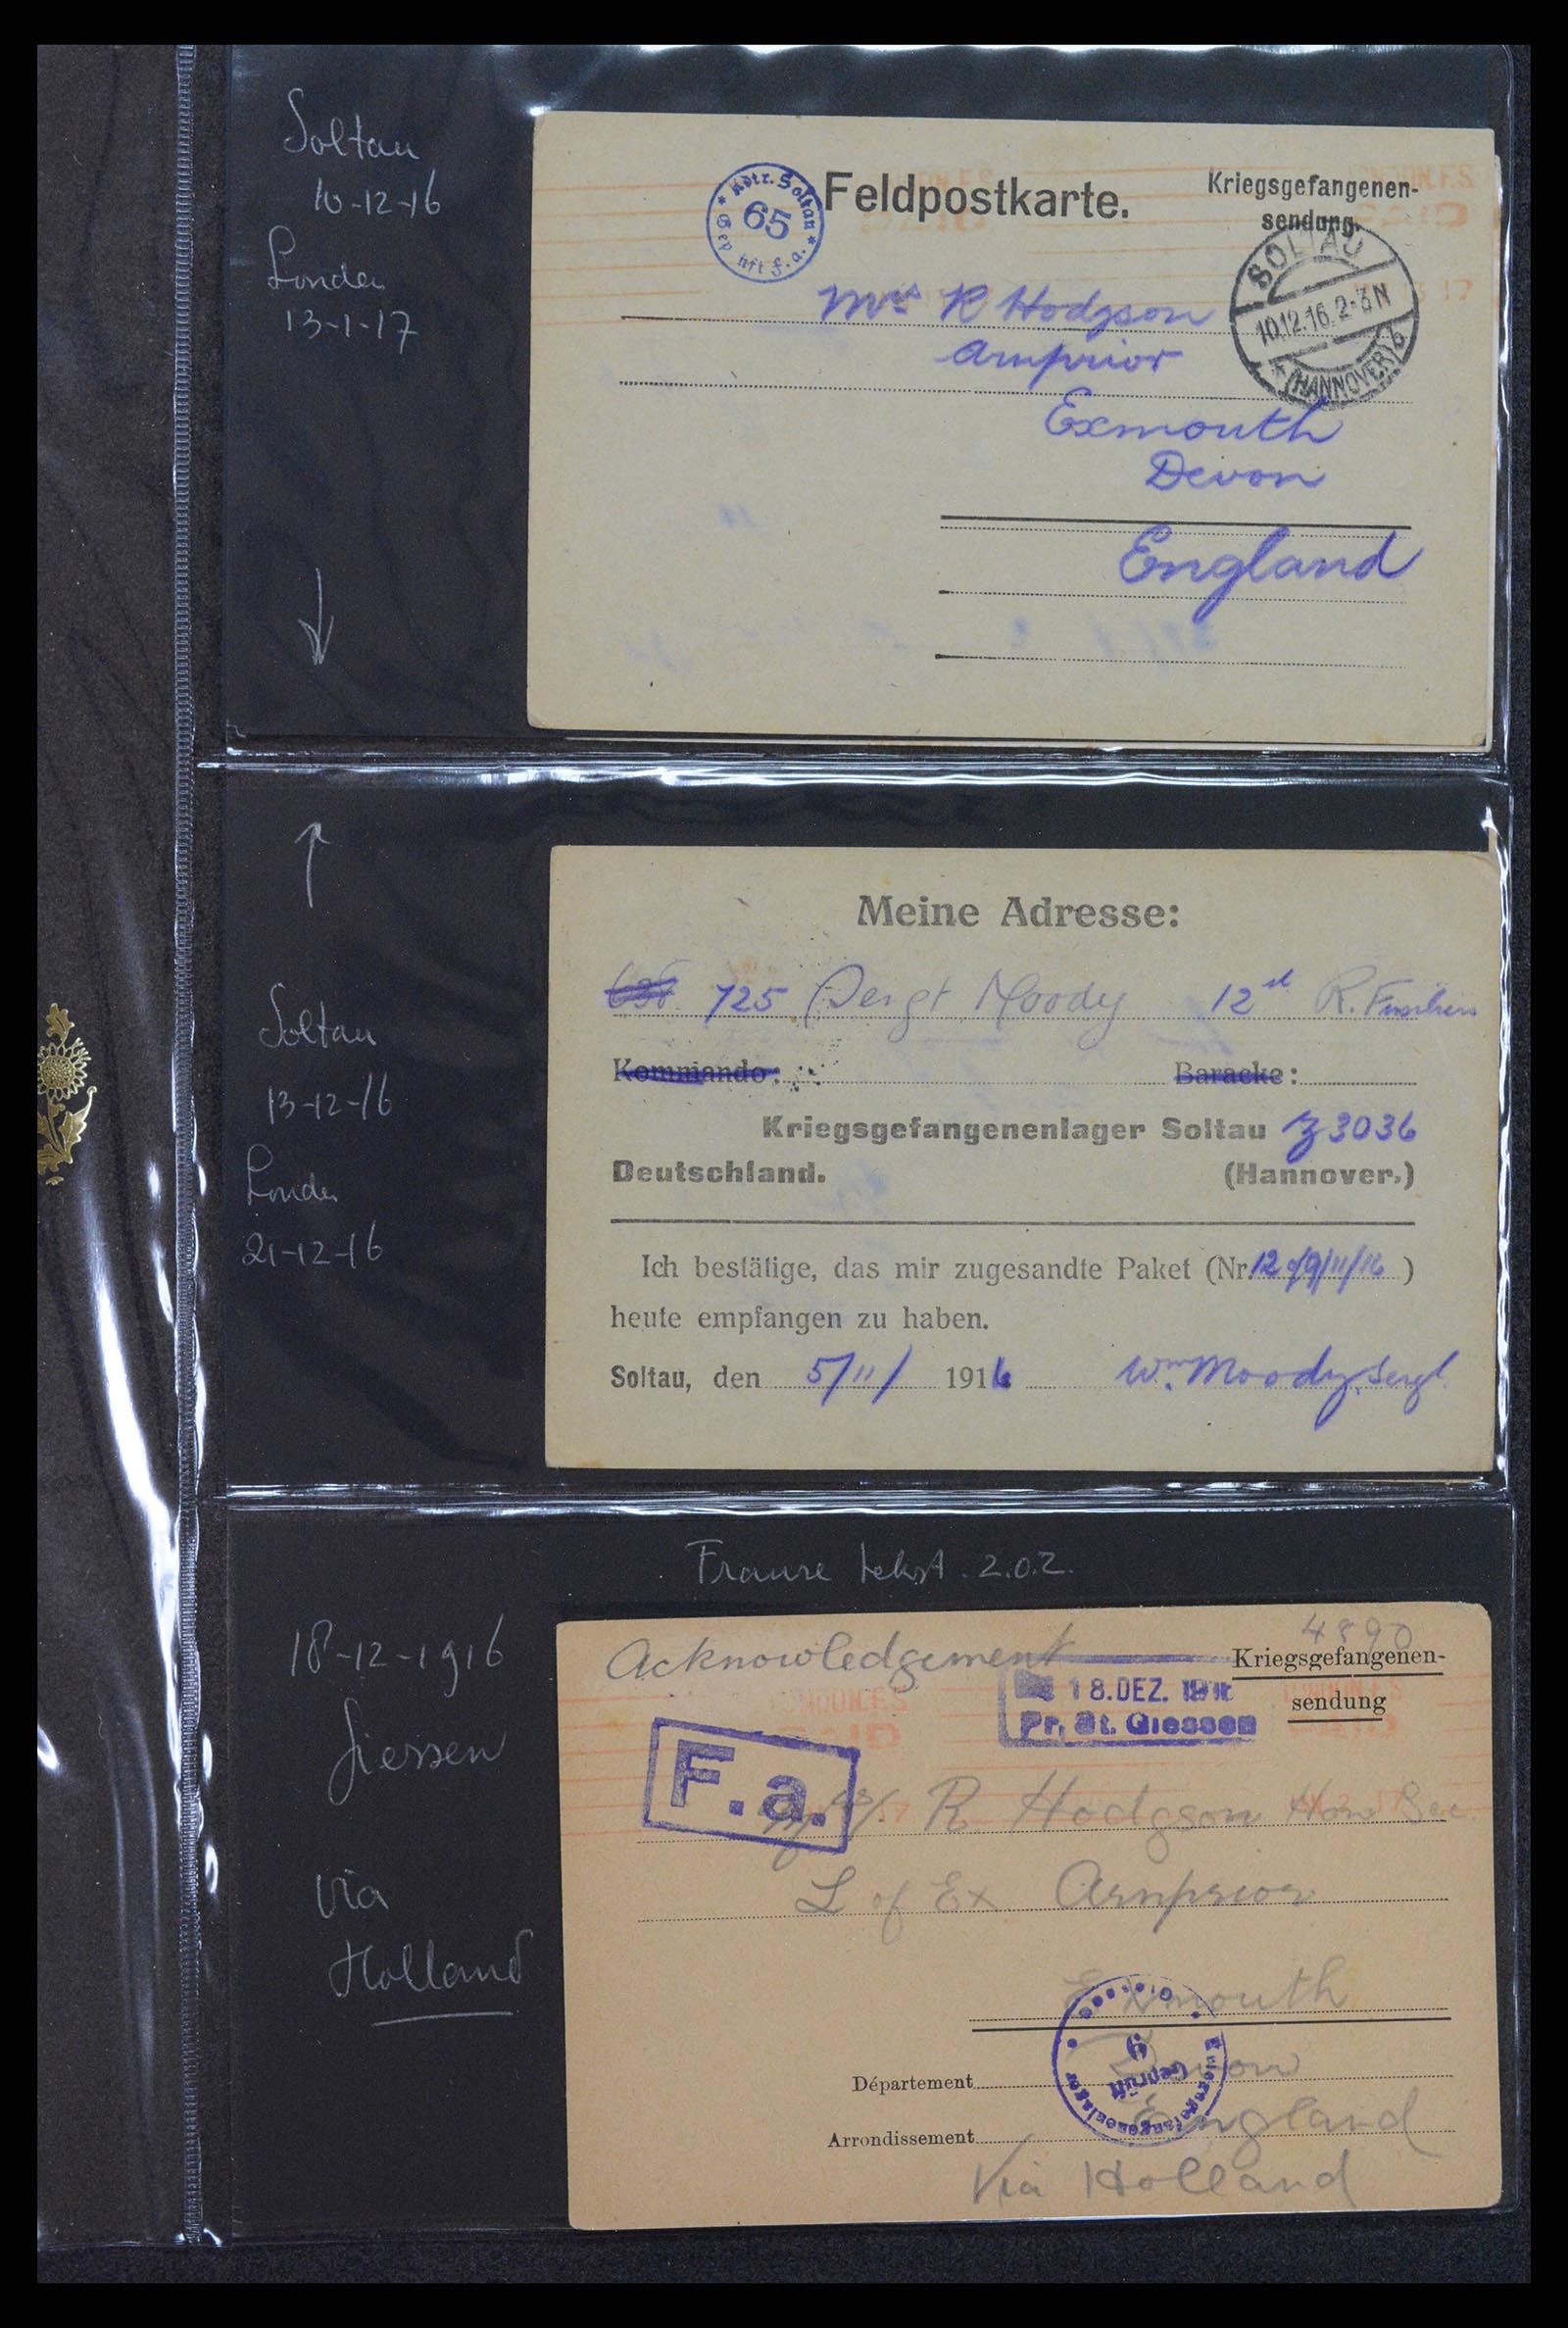 Soltau
10-12-16
Londen
13-1-17
Kdtr. Soltau
65
f. a.
Feldpostkarte.
Kriegsgefangenen-
sendung.
SOLTAU
10.12.16. 2-3 N
(HANNOVER) b
Mrs R Hodgson
Arnprior
Exmouth
Devon
England
Soltau
13-12-16
Londen
21-12-16
Meine Adresse:
725 Sergt Moody 12th R. Fusiliers
Kommando: Baracke:
Kriegsgefangenenlager Soltau Z 3036
Deutschland. (Hannover.)
Ich bestätige, das mir zugesandte Paket (Nr. 12 of 9/11/16 )
heute empfangen zu haben.
Soltau, den 5/11/ 1916 Wm. Moody. Sergt.
Franse tekst. z.o.z.
18-12-1916
Giessen
via
Holland
Acknowledgement
4890
Kriegsgefangenen-
sendung
18. DEZ. 1916
Pr. St. Giessen
LONDON F.S.
PAID
F.a.
R Hodgson Hon Sec.
L of Ex Arnprior
Exmouth
Geprüft
9
Kriegsgefangenenlager
Giessen
Département Devon
Arrondissement England
Via Holland